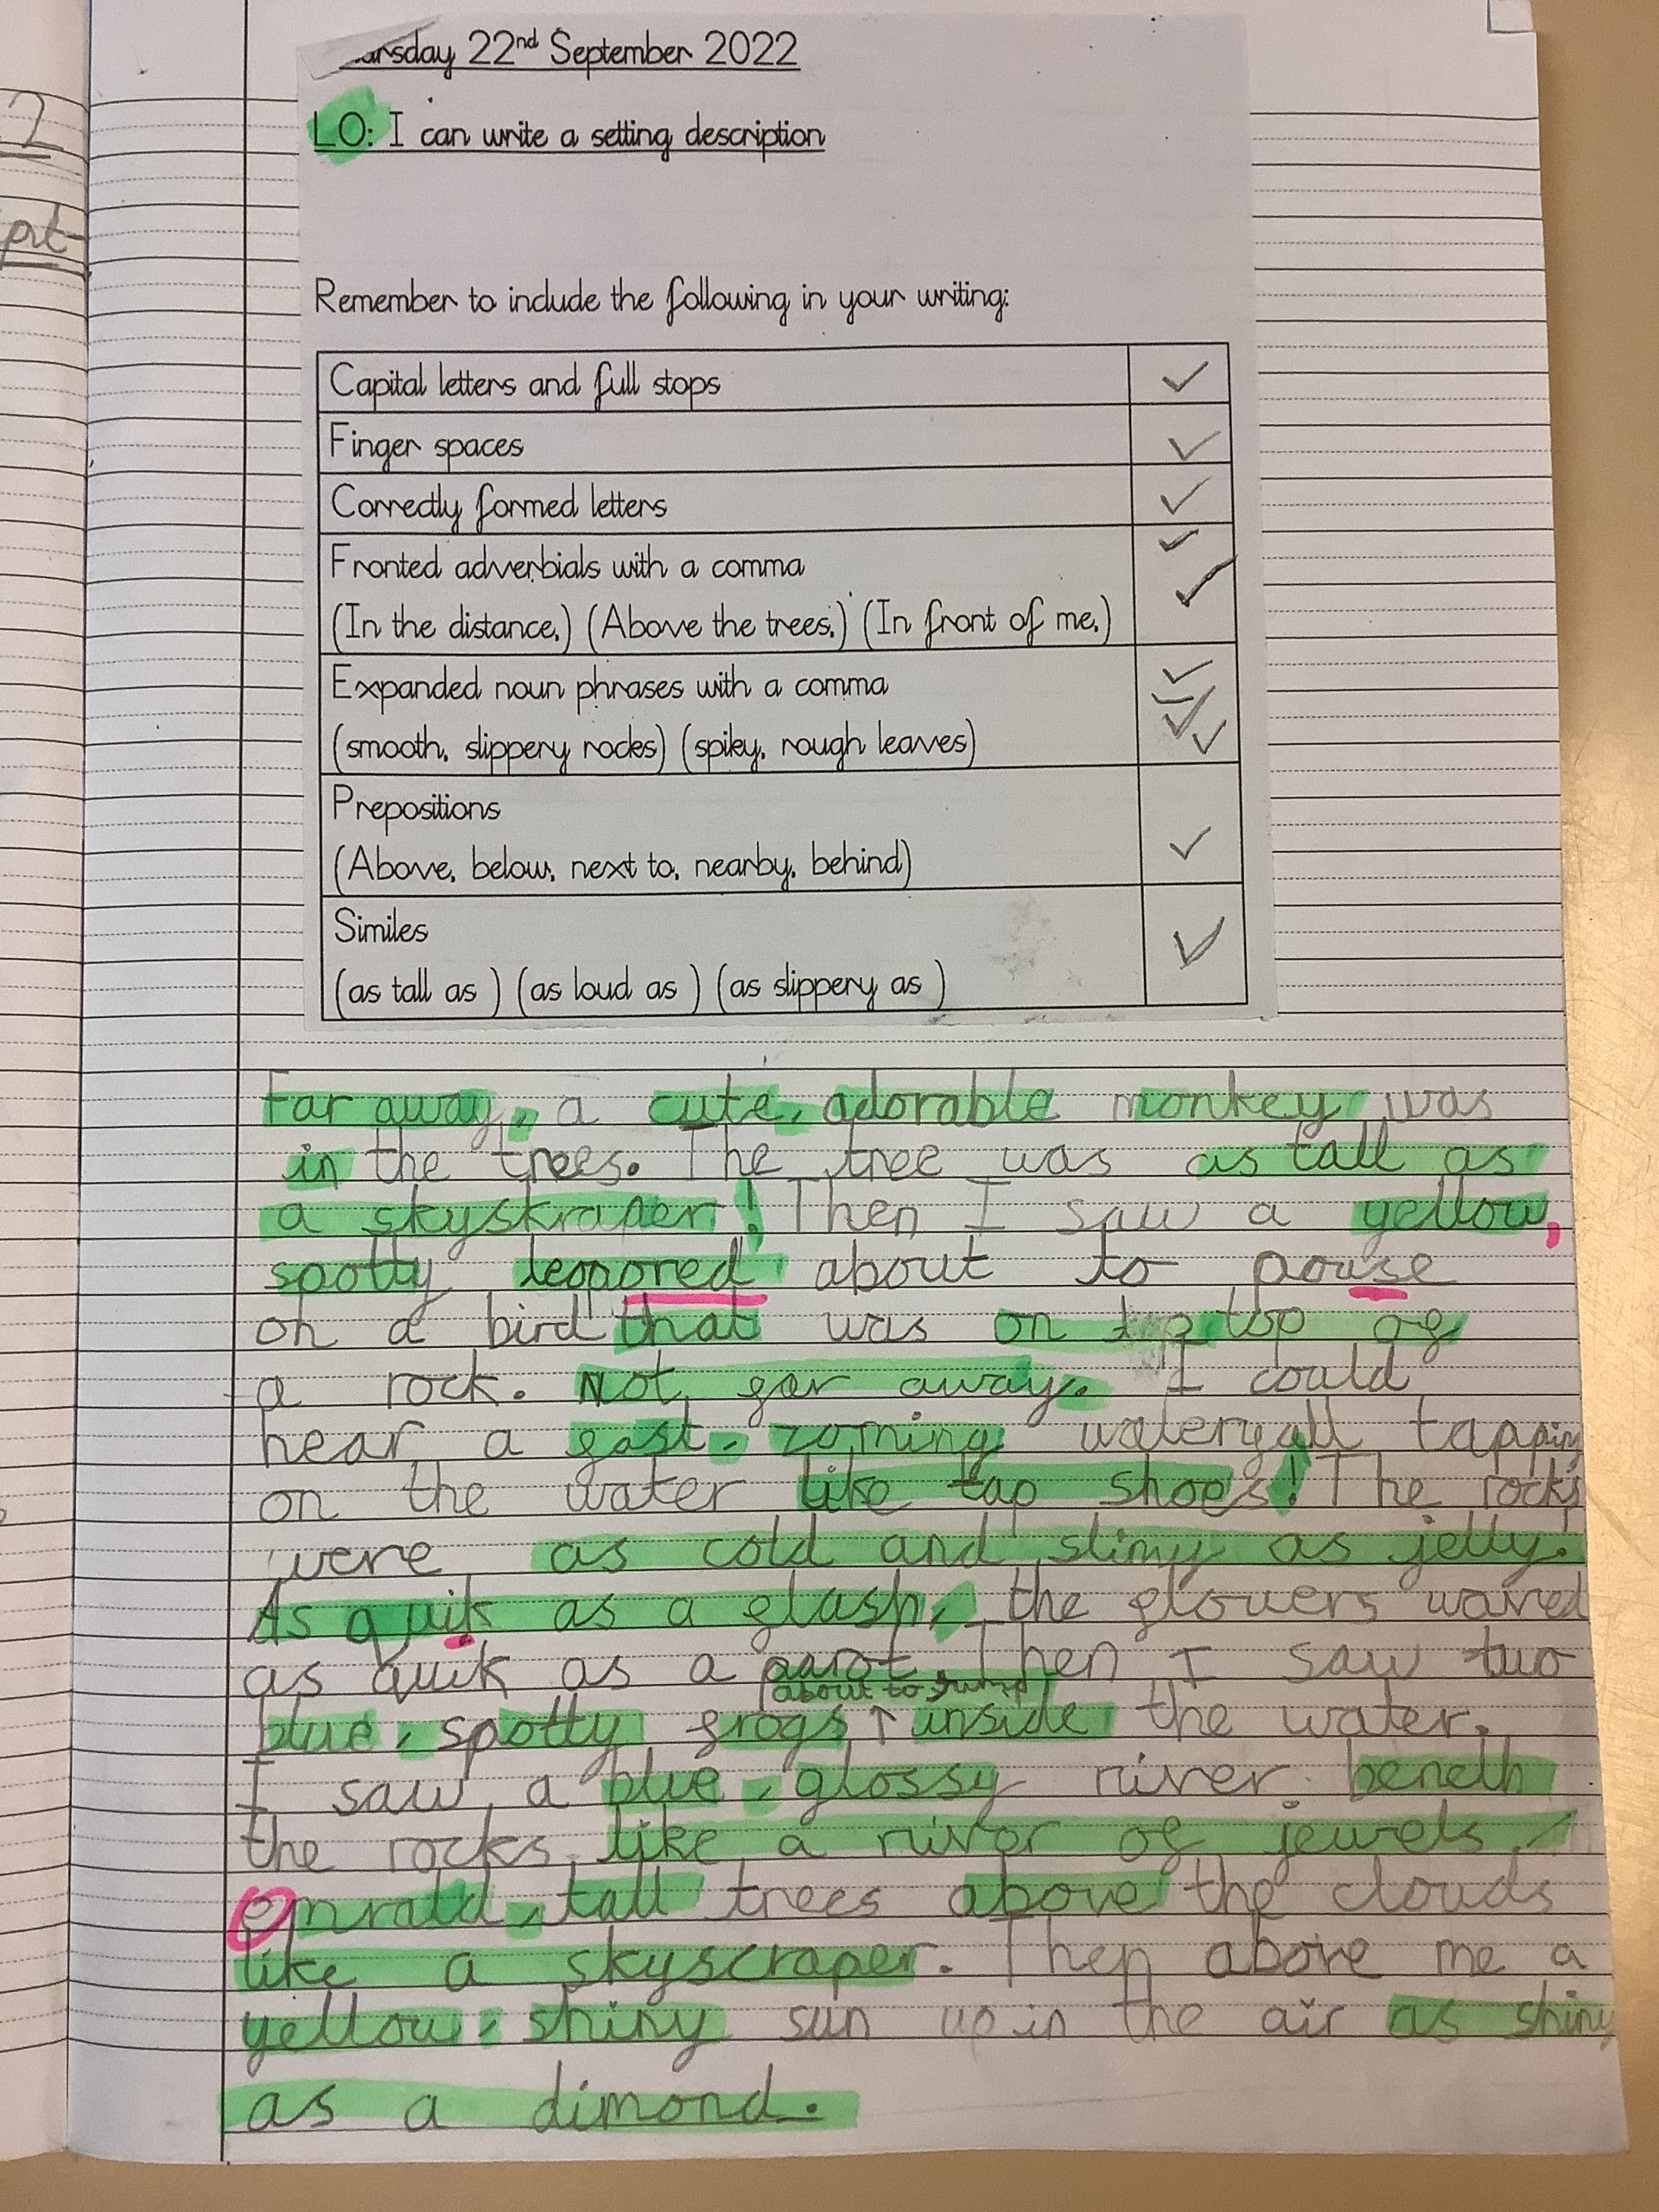 22nd September 2022
LO: I can write a setting description
Remember to include the following in your writing:
Capital letters and full stops
Finger spaces
Correctly formed letters
Fronted adverbials with a comma
(In the distance,) (Above the trees,) (In front of me,)
Expanded noun phrases with a comma
(smooth, slippery rocks) (spiky, rough leaves)
Prepositions
(Above, below, next to, nearby, behind)
Similes
(as tall as ) (as loud as ) (as slippery as )
Far away, a cute, adorable monkey was
in the trees. The tree was as tall as
a skyskraper! Then I saw a yellow,
spotty leopored about to pouse
on a bird that was on top of
a rock. Not far away, I could
hear a fast, zoming waterfall tapping
on the water like tap shoes! The rocks
were as cold and slimy as jelly!
As quik as a flash, the flowers waved
as quik as a parot. Then I saw two
about to jump
blue, spotty frogs ↑ inside the water.
I saw a blue, glossy river beneth
the rocks like a river of jewels,
emrald, tall trees above the clouds
like a skyscraper. Then above me a
yellow, shiny sun up in the air as shiny
as a dimond.